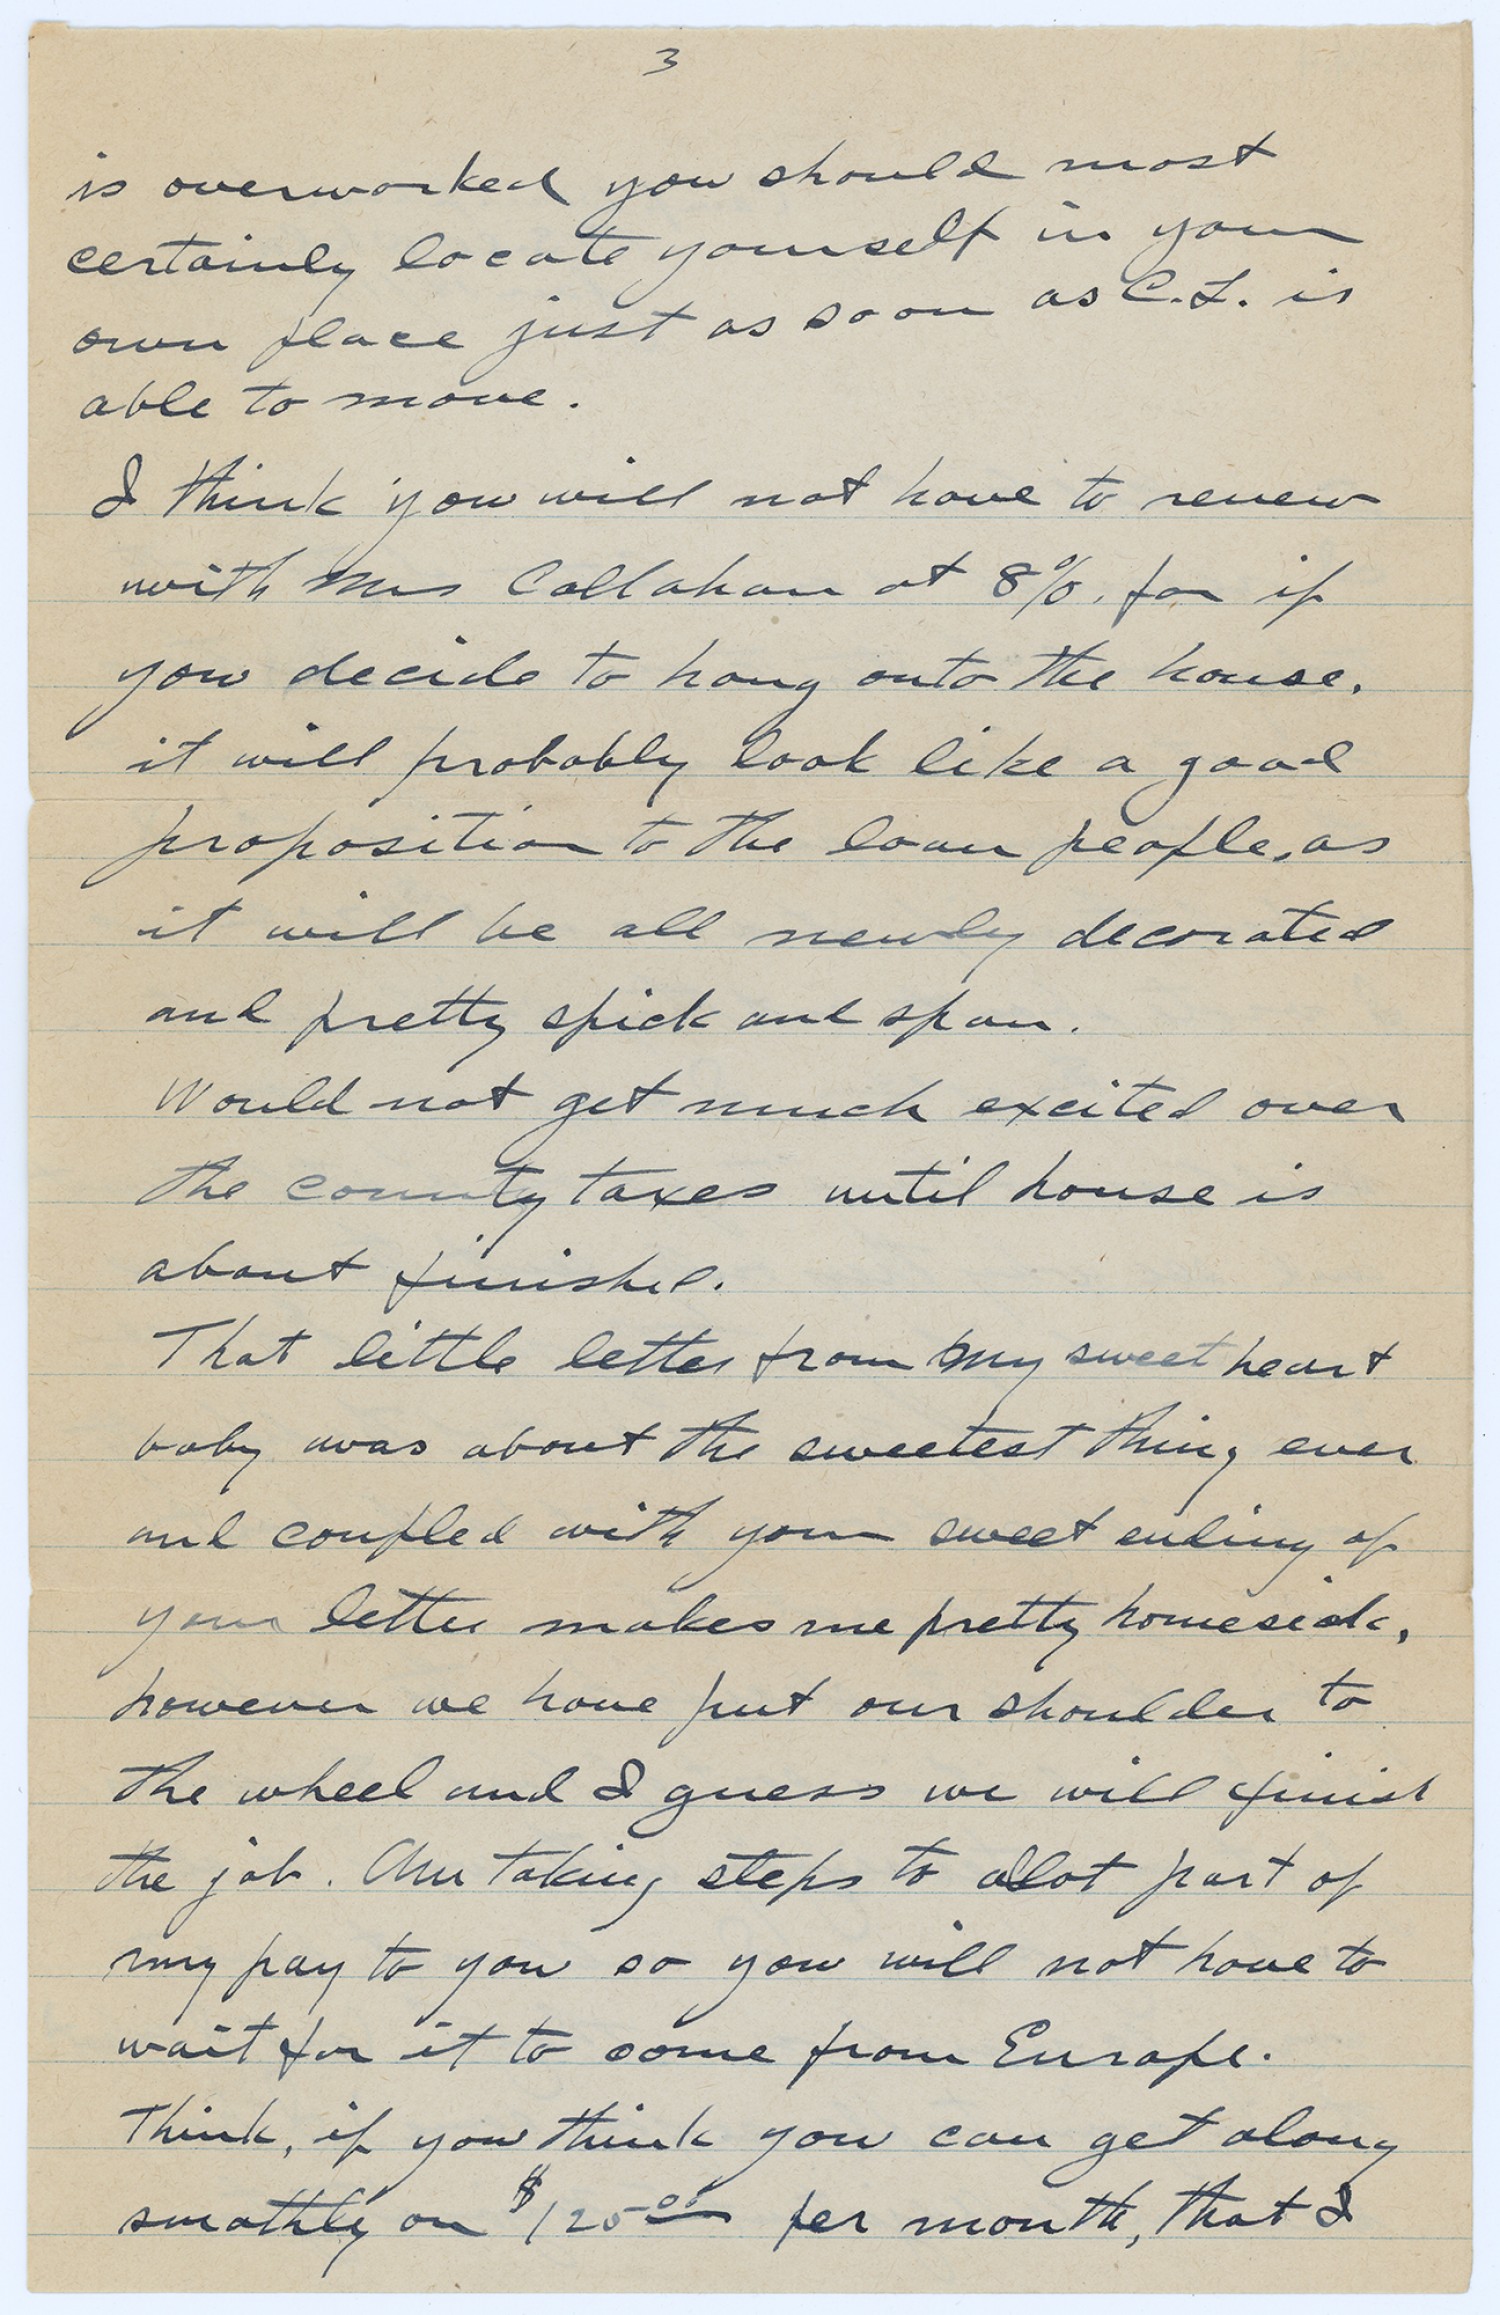 3
is overworked you should most
certainly locate yourself in your
own place just as soon as C.L. is
able to move.
I think you will not have to renew
with Mrs Callahan at 8%. for if
you decide to hang onto the house.
it will probably look like a good
proposition to the loan people, as
it will be all newly decorated
and pretty spick and span.
Would not get much excited over
the county taxes until house is
about finished.
That little letter from my sweet heart
baby was about the sweetest thing ever
and coupled with your sweet ending of
your letter makes me pretty homesick,
however we have put our shoulder to
the wheel and I guess we will finish
the job. Am taking steps to alot part of
my pay to you so you will not have to
wait for it to come from Europe.
Think, if you think you can get along
smothly on $125.00 per month, that I